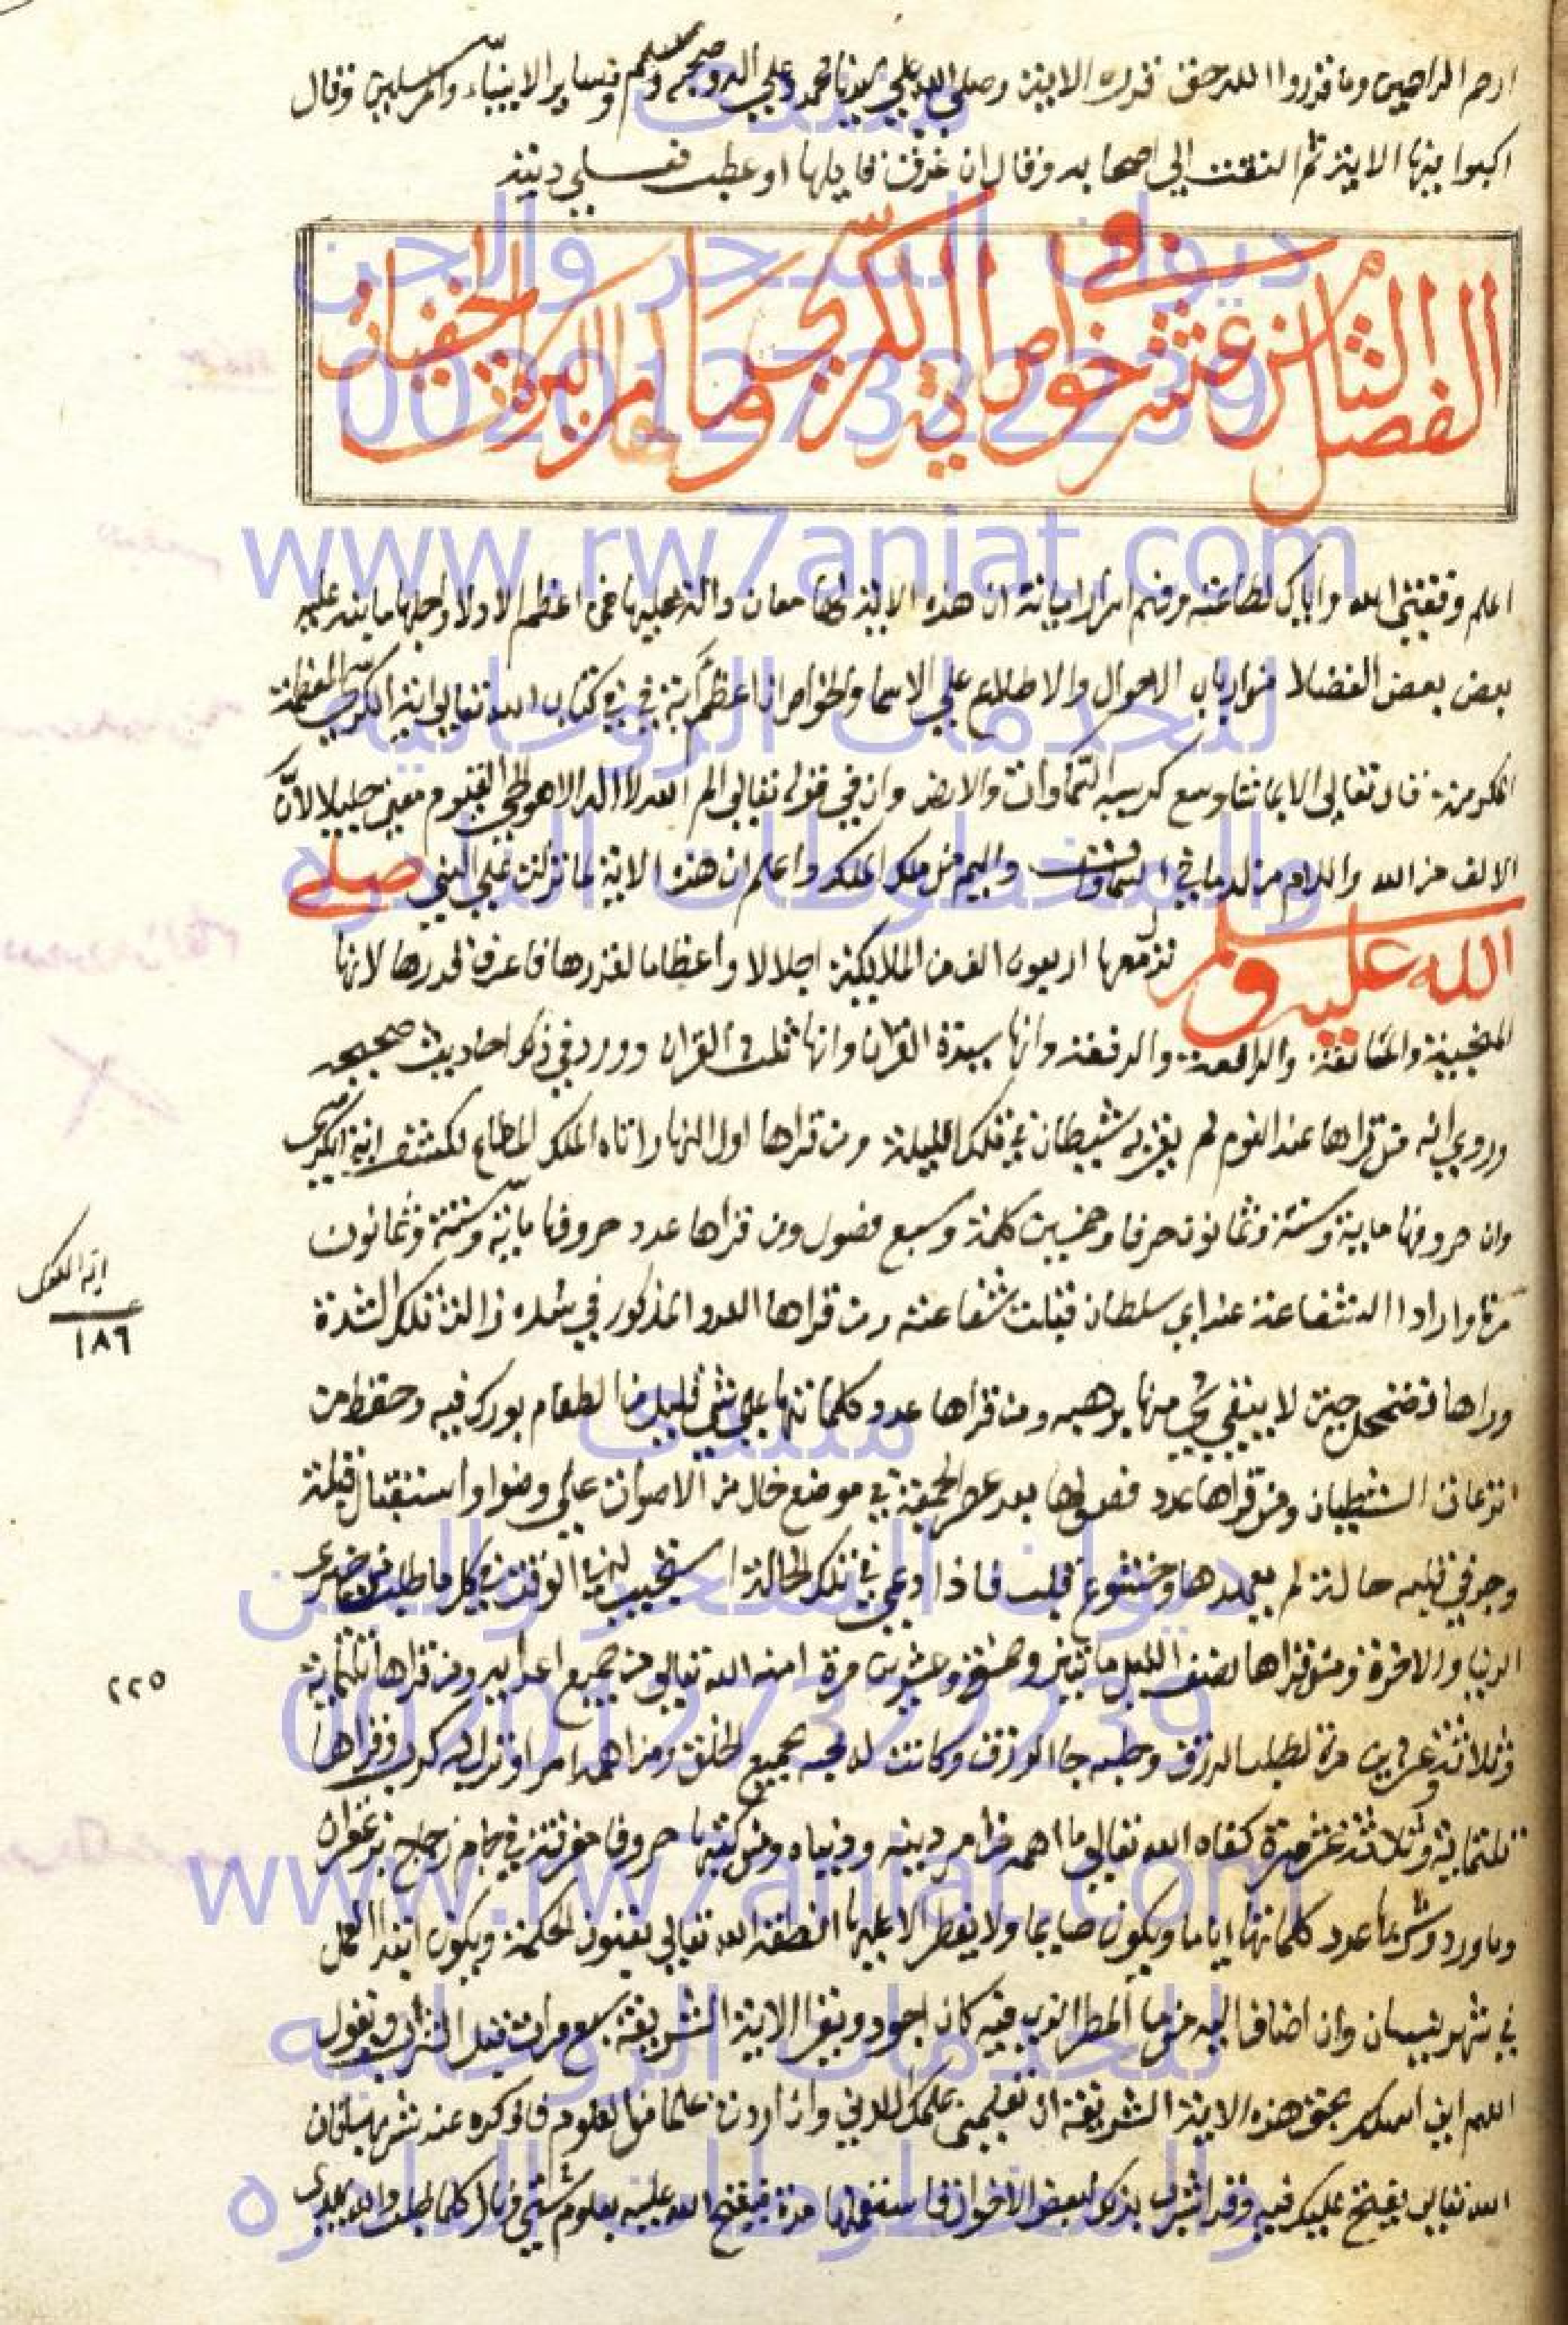 ارحم الراحمين وما قدروا الله حق قدره الاية وصلي الله علي سيدنا محمد وعلي اله وصحبه وسلم وساير الانبياء والمرسلين وقال
اركبوا فيها الاية ثم التفت الي اصحابه وقال ان غرق قايلها او عطب فعلي ديته
الفصل الثامن عشر في خواص اية الكرسي وما لها من البركات الخفيات
اعلم وفقني الله واياك لطاعته وفهم اسرار اياته ان هذه الاية لها معان دالة عليها فمن اعظم الادلا واجلها ما نبه عليه
بعض بعض الفضلا من ارباب الاحوال والاطلاع علي الاسما والخواص ان اعظم اية في كتاب الله تعالي اية الكرسي المعظمة
المكرمة قال تعالي وسع كرسيه السماوات والارض وان في قوله تعالي الم الله لا اله الا هو الحي القيوم معني جليلا لان
الالف من الله واللام من له ما في السماوات والميم من ملك الملك واعلم ان هذه الاية لما نزلت علي النبي صلي
الله عليه وسلم نزل معها اربعون الف من الملايكة اجلالا واعظاما لقدرها فاعرف قدرها لانها
المنجية والدافعة والرفعة وانها سيدة القران وانها ثلث القران وورد في ذكر احاديث صحيحه
وروي انه من قراها عند النوم لم يقربه شيطان في تلك الليلة ومن قراها اول النهار اتاه الملك المطاع لكشف اية الكرسي
وان حروفها ماية وستة وثمانون حرفا وخمسين كلمة وسبع فصول ومن قراها عدد حروفها ماية وستة وثمانون
مرة واراد الشفاعة عند اي سلطان قبلت شفاعته ومن قراها العدد المذكور في شده زالت تلك الشدة
وراها تضمحل حتي لا يبقي شي منها يوهمه ومن قراها عدد كلماتها علي شي قليل من الطعام بورك فيه وحفظ من
نزعات الشيطان ومن قراها عدد فصولها بعد عصر الجمعة في موضع خال من الاصوات علي وضوا واستقبال قبلة
وجد في قلبه حالة لم يعهدها وخشوع قلب فاذا دعي في تلك الحالة استجيب له في الوقت في كل ما طلب من خيري
الدنيا والاخرة ومن قراها نصف الليل مايتين وخمسة وعشرين مرة امنه الله تعالي من جميع اعدايه ومن قراها ثلثماية
وثلاثة عشر مرة لطلب الرزق وطلبه جا الرزق وكانت له محبه بجميع الخلق ومن اهمه امر او نزل به كرب وقراها
ثلثماية وثلاثة عشر مرة كفاه الله تعالي ما اهمه من امر دينه ودنياه ومن كتبها حروفا مفرقة في جام زجاج بزعفران
وماورد وشربها عدد كلماتها اياما ويكون صايما ولا يفطر الا عليها انطقه الله تعالي بفنون الحكمة ويكون ابتدا العمل
في شهر نيسان وان اضاف اليه من ما المطر الذي فيه كان اجود ويقرا الاية الشريفة سبع مرات قبل الشراب ويقول
اللهم اني اسالك بحق هذه الاية الشريفة ان تعلمني علمك اللدني وان اردت علما من العلوم فاذكره عند شربها فان
الله تعالي يفتح عليك فيه وقد اشرت بذلك لبعض الاخوان فاستعملها مدة ففتح الله عليه بعلوم شتي ونال كلما طلب والله يهدي
اية الكرسي
١٨٦
٢٢٥
منتدى
ديوان السحر والجن
00201273322239
www.rw7aniat.com
للخدمات الروحانيه
والمخطوطات النادره
منتدى
ديوان السحر والجن
00201273322239
www.rw7aniat.com
للخدمات الروحانيه
والمخطوطات النادره